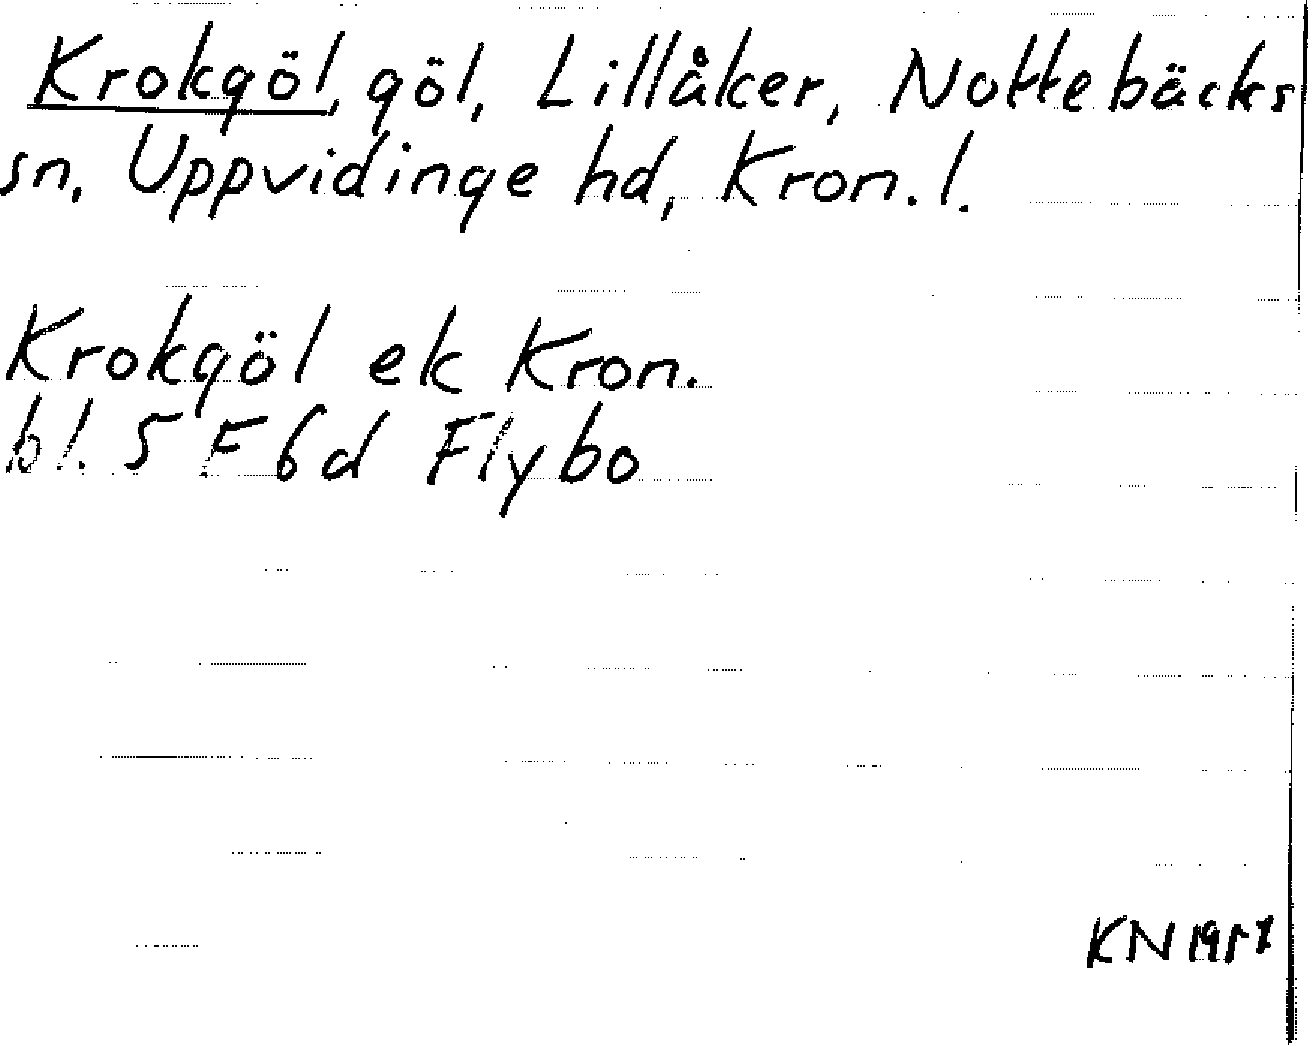 Krokgöl, göl, Lillåker, Nottebäcks
sn, Uppvidinge hd, Kron. l.
Krokgöl ek Kron.
bl. 5 F 6d Flybo
KN